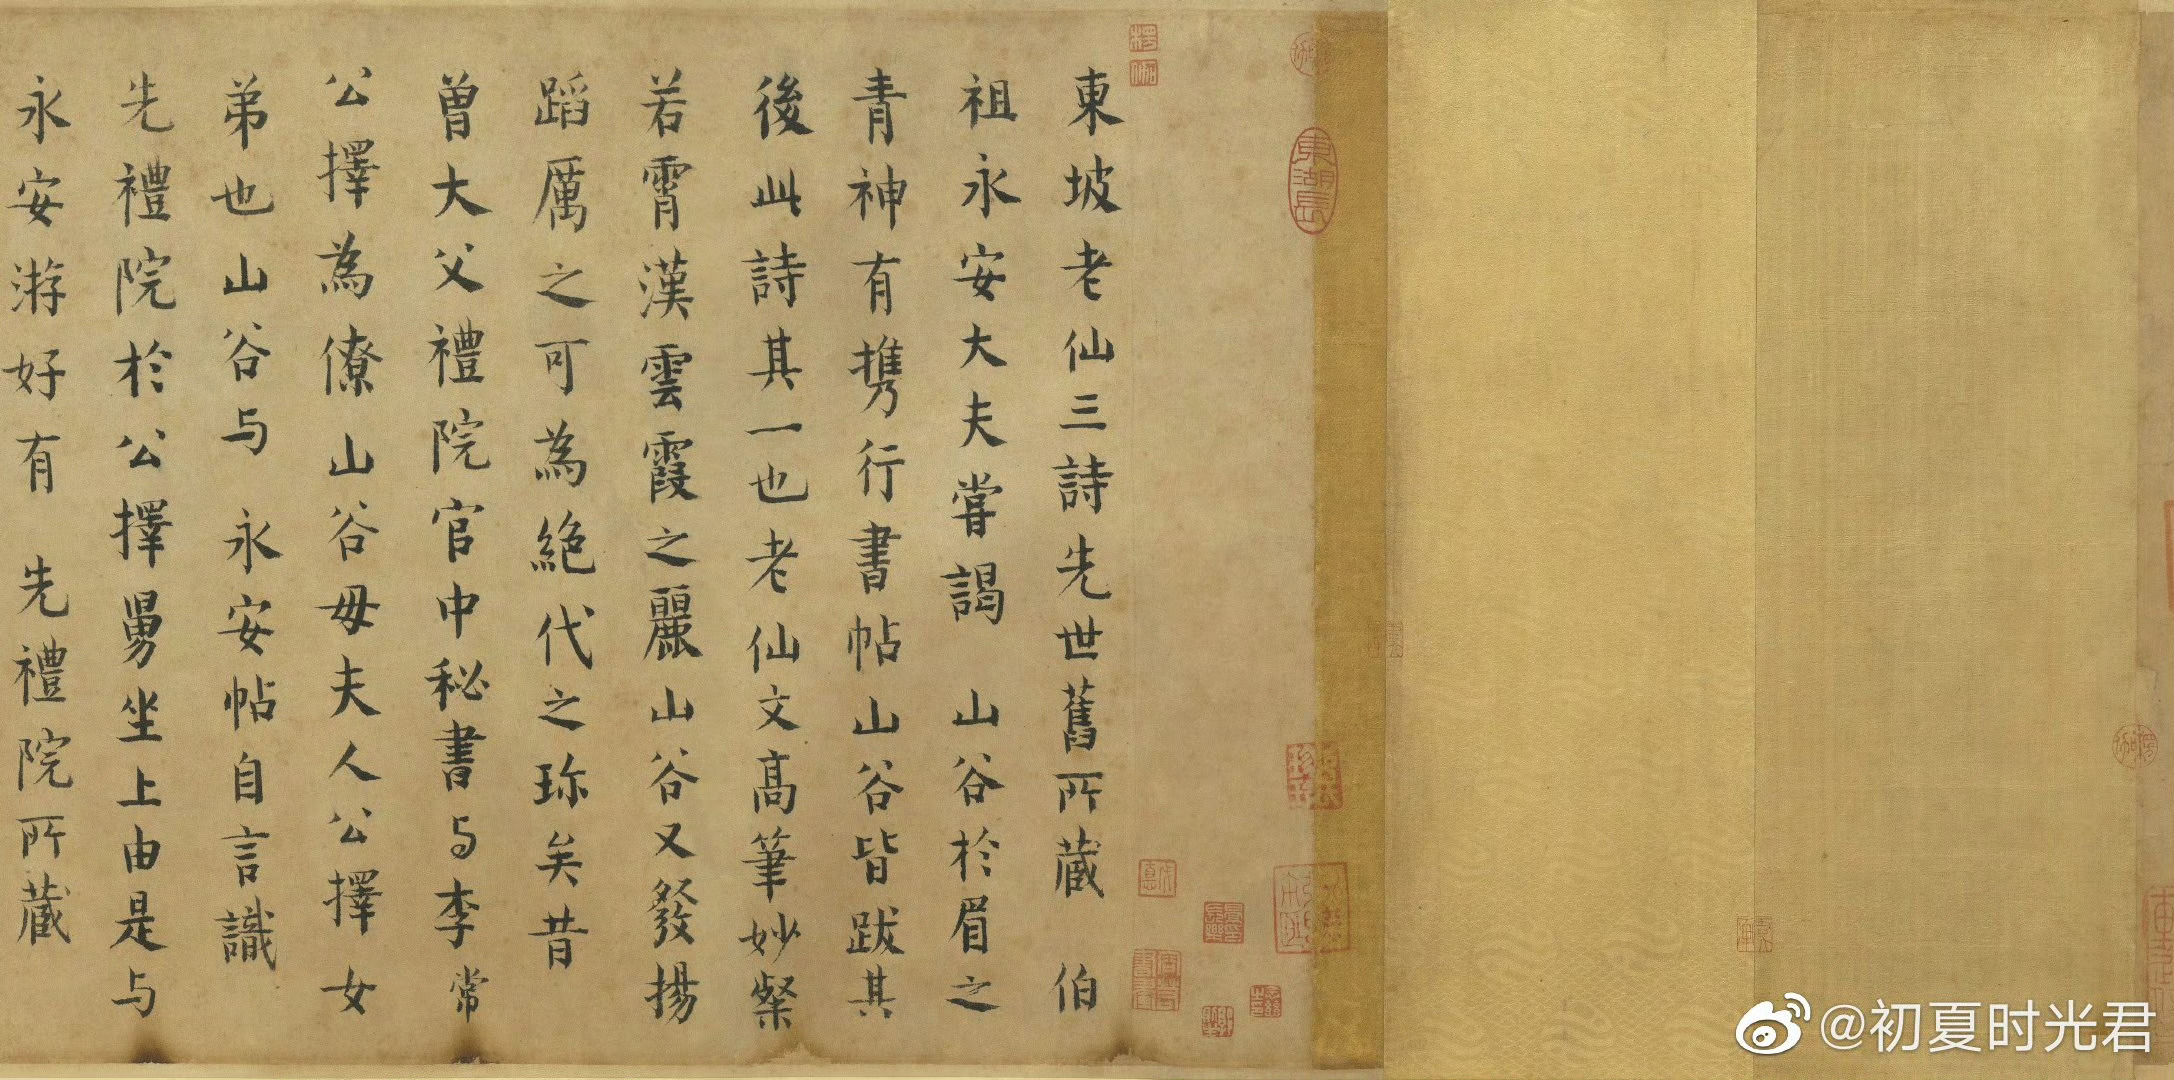 東坡老仙三詩先世舊所藏 伯
祖永安大夫嘗謁 山谷於眉之
青神有攜行書帖山谷皆跋其
後此詩其一也老仙文高筆妙粲
若霄漢雲霞之麗山谷又發揚
蹈厲之可為絕代之珎矣昔
曾大父禮院官中秘書与李常
公擇為僚山谷母夫人公擇女
弟也山谷与 永安帖自言識
先禮院於公擇舅坐上由是与
永安游好有 先禮院所藏
東湖長
@初夏时光君